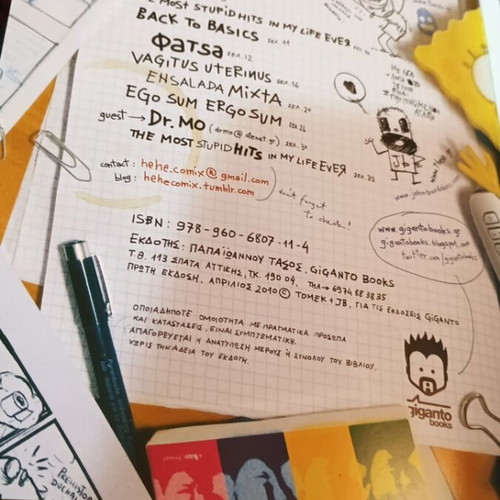 THE MOST STUPID HITS IN MY LIFE EVER
BACK TO BASICS ΣΕΛ.
ΦΑΤSA ΣΕΛ. 12
VAGITUS UTERINUS ΣΕΛ. 16
ENSALADA MIXTA ΣΕΛ. 20
EGO SUM ERGO SUM ΣΕΛ. 26
guest → Dr. MO (drmo@otenet.gr) ΣΕΛ. 30
THE MOST STUPID HITS IN MY LIFE EVER ΣΕΛ. 32
contact: hehe.comix@gmail.com
blog: hehecomix.tumblr.com
don't forget
to check!
ISBN: 978-960-6807-11-4
ΕΚΔΟΤΗΣ: ΠΑΠΑΪΩΑΝΝΟΥ ΤΑSΟΣ, GIGANTO BOOKS
Τ.Θ. 113 ΣΠΑΤΑ ΑΤΤΙΚΗΣ, ΤΚ. 190 04, ΤΗΛ → 6974 88 38 35
ΠΡΩΤΗ ΕΚΔΟΣΗ, ΑΠΡΙΛΙΟΣ 2010 © TOMEK + JB, ΓΙΑ ΤΙΣ ΕΚΔΟΣΕΙΣ GIGANTO
ΟΠΟΙΑΔΗΠΟΤΕ ΟΜΟΙΟΤΗΤΑ ΜΕ ΠΡΑΓΜΑΤΙΚΑ ΠΡΟΣΩΠΑ
ΚΑΙ ΚΑΤΑΣΤΑΣΕΙΣ, ΕΙΝΑΙ ΣΥΜΠΤΩΜΑΤΙΚΗ.
ΑΠΑΓΟΡΕΥΕΤΑΙ Η ΑΝΑΤΥΠΩΣΗ ΜΕΡΟΥΣ Ή ΣΥΝΟΛΟΥ ΤΟΥ ΒΙΒΛΙΟΥ,
ΧΩΡΙΣ ΤΗΝ ΑΔΕΙΑ ΤΟΥ ΕΚΔΟΤΗ.
www.gigantobooks.gr
gigantobooks.blogspot.com
twitter.com/gigantobooks
giganto
books